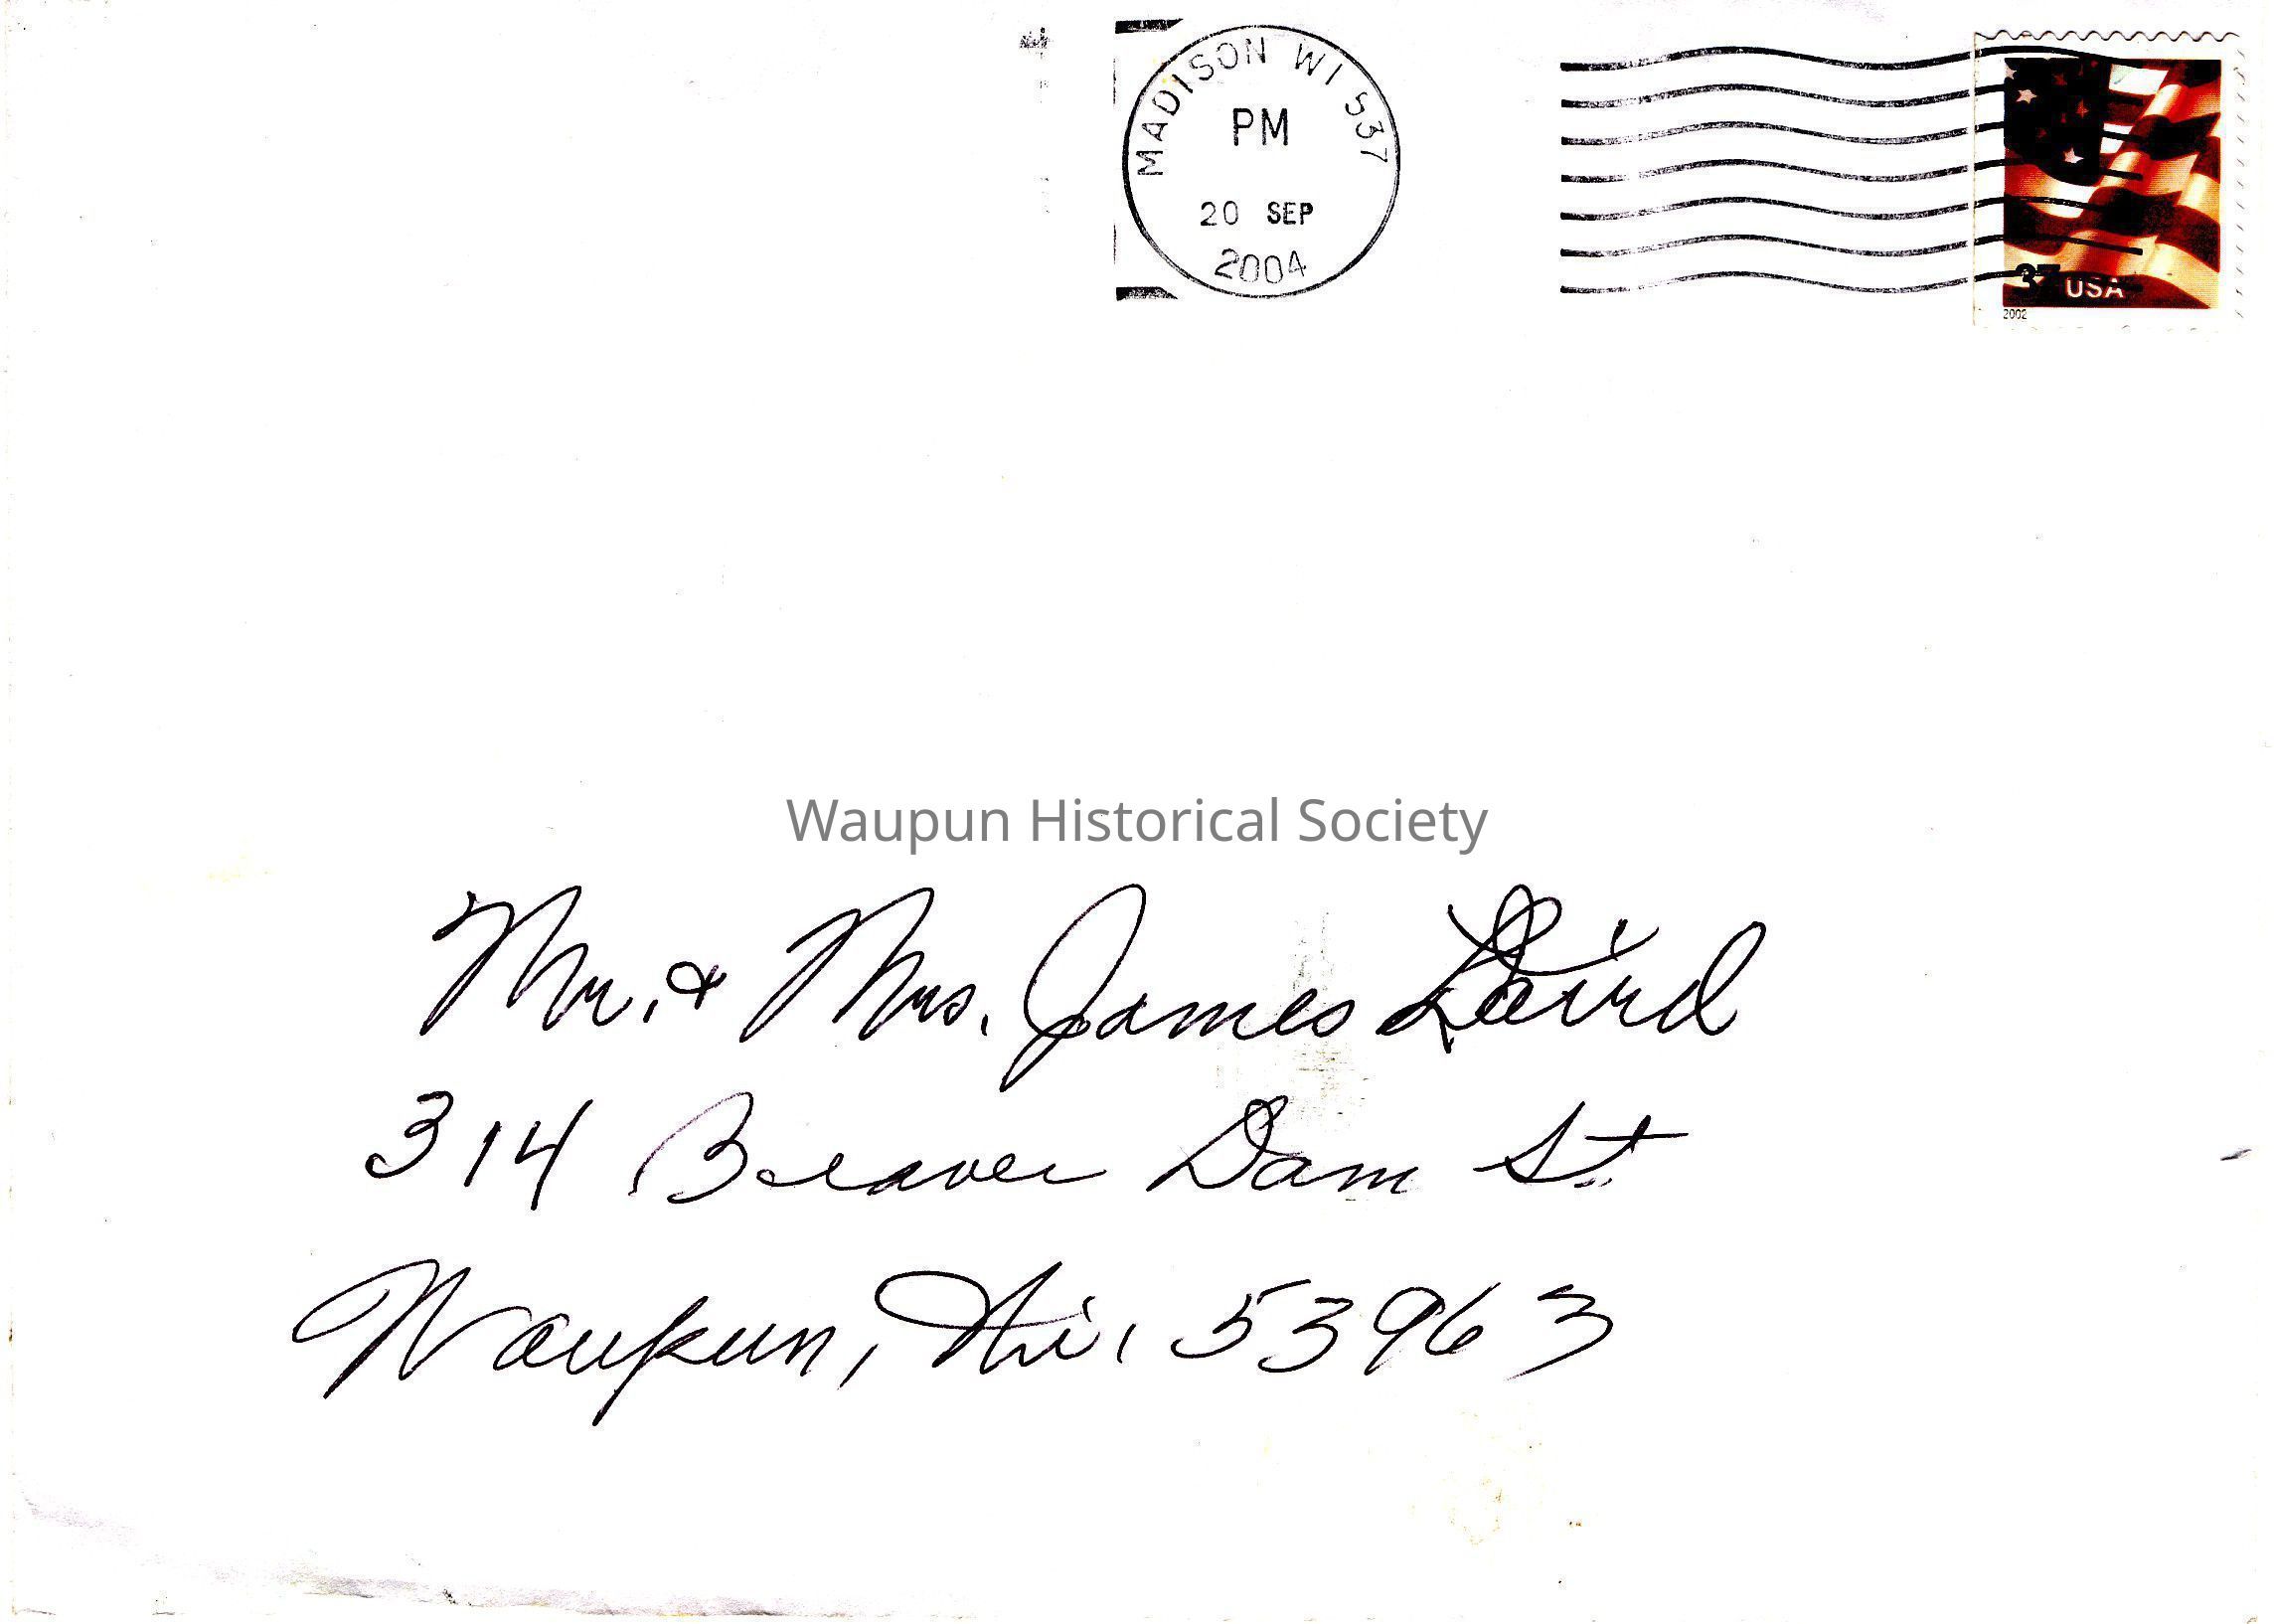 MADISON WI 537
PM
20 SEP
2004
37 USA
2002
Waupun Historical Society
Mr. & Mrs. James Laird
314 Beaver Dam St.
Waupun, Wi. 53963